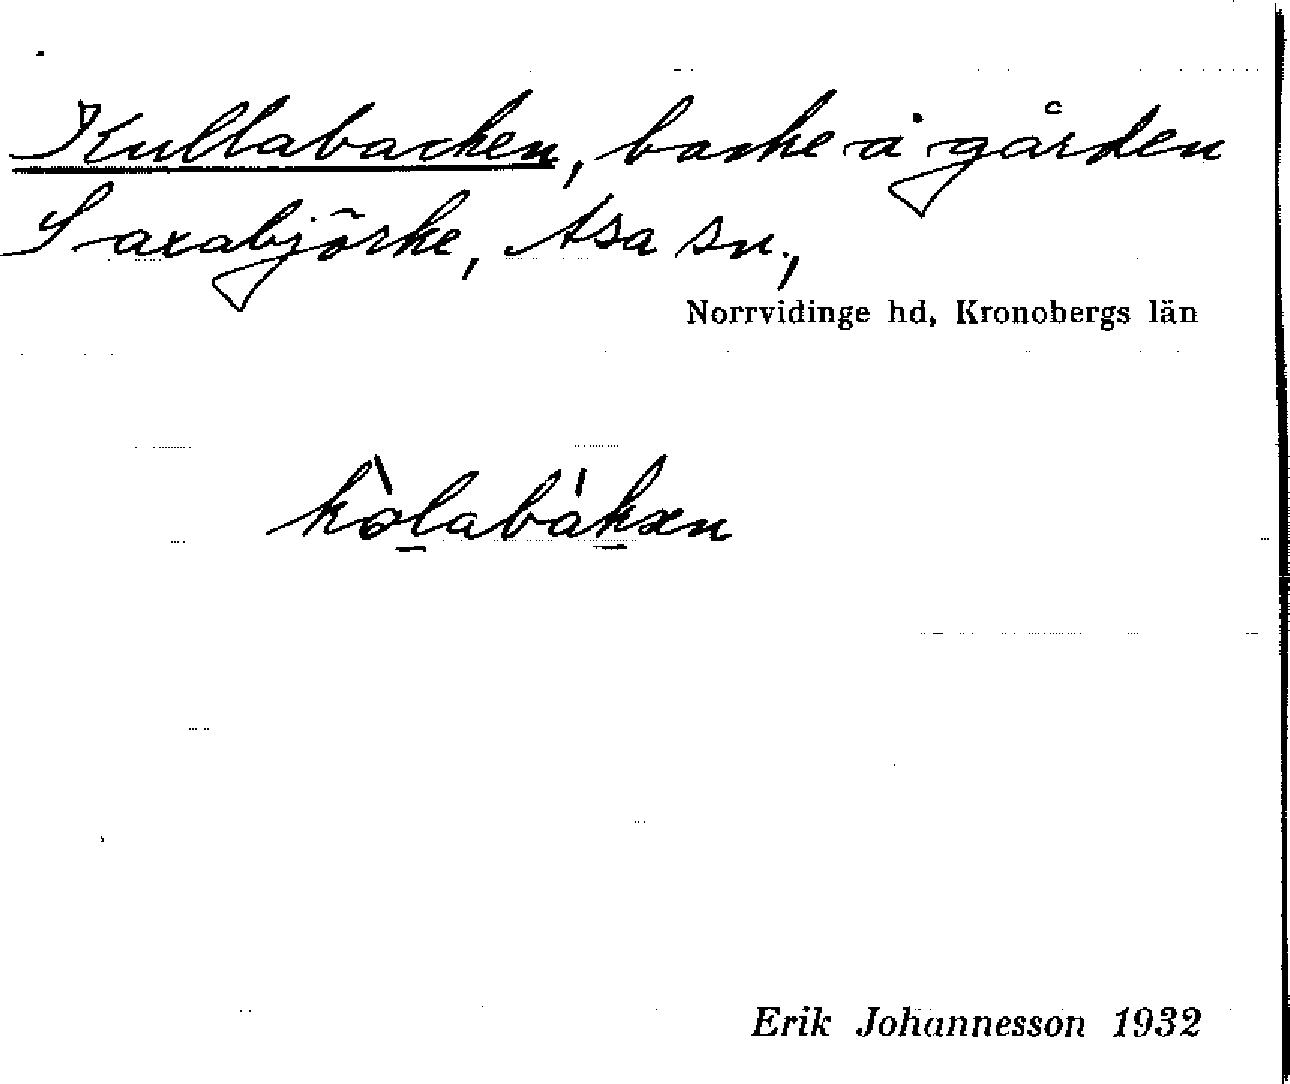 Kullabacken, backe å gården
Saxabjörke, Asa sn.,
Norrvidinge hd, Kronobergs län
kòlabákən
Erik Johannesson 1932